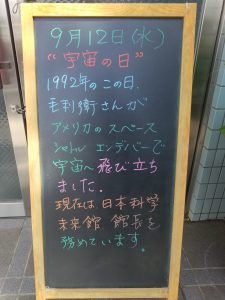 9月12日(水)
"宇宙の日"
1992年のこの日、
毛利衛さんが
アメリカのスペース
シャトル エンデバーで
宇宙へ飛び立ち
ました。
現在は日本科学
未来館 館長を
務めています。